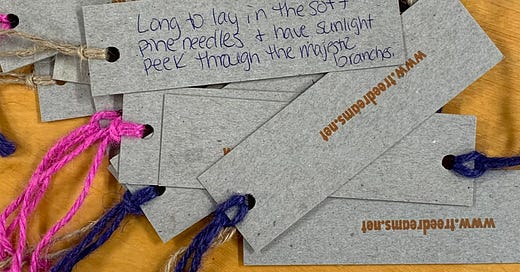 Long to lay in the soft
pine needles & have sunlight
peek through the majestic
branches.
www.treedreams.net
www.treedreams.net
www.treedreams.net